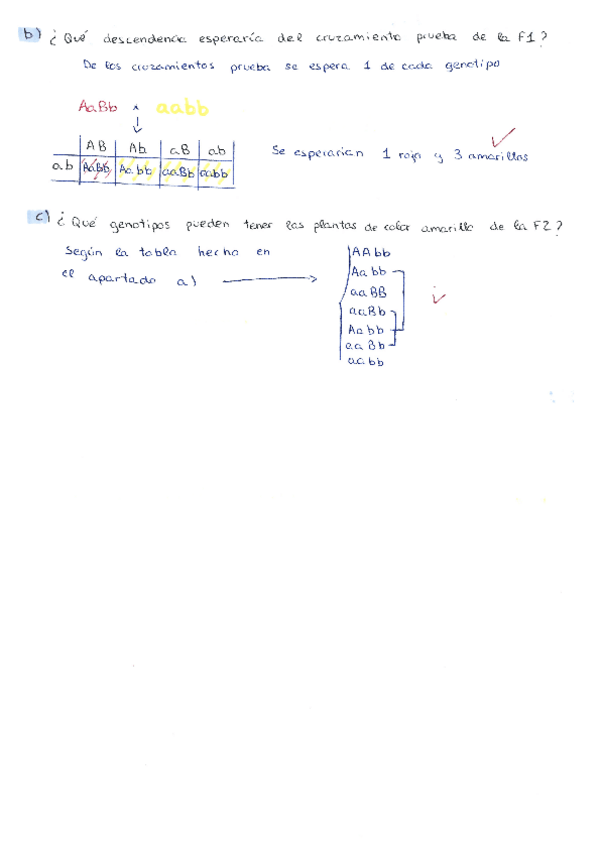 b) ¿Qué descendencia esperaría del cruzamiento prueba de la F1?
De los cruzamientos prueba se espera 1 de cada genotipo
AaBb x aabb
AB | Ab | aB | ab
ab | AaBb | Aabb | aaBb | aabb
Se esperarian 1 roja y 3 amarillas
c) ¿Qué genotipos pueden tener las plantas de color amarillo de la F2?
Según la tabla hecha en
el apartado a)
AAbb
Aabb
aaBB
aaBb
Aabb
aaBb
aabb